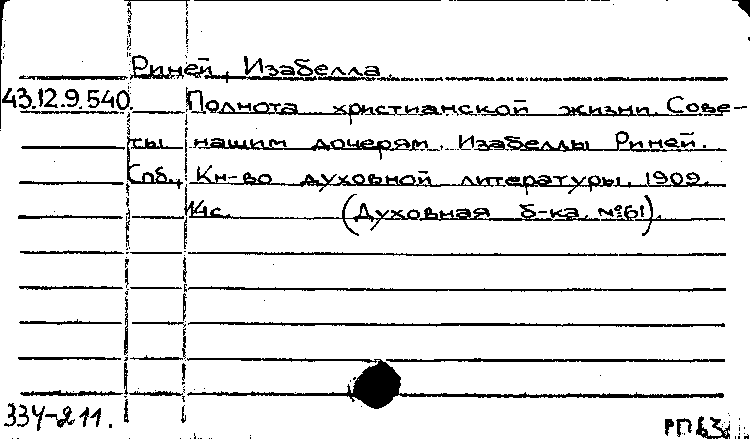 Риней, Изабелла.
43.12.9.540. Полнота христианской жизни. Сове-
ты нашим дочерям. Изабеллы Риней.
Спб., Кн-во духовной литературы, 1909.
14с. (Духовная б-ка №61).
334-211.